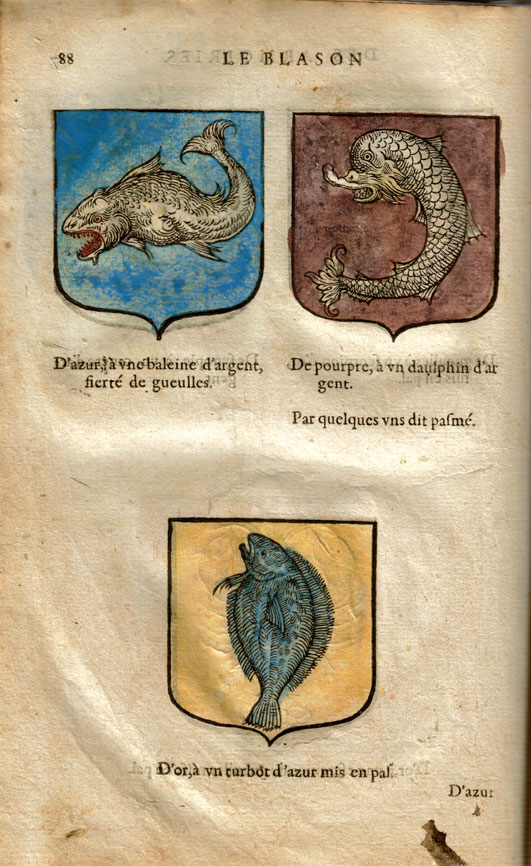 88 LE BLASON
D'azur, à vne baleine d'argent,
fierté de gueulles.
De pourpre, à vn daulphin d'ar
gent.
Par quelques vns dit paſmé.
D'or, à vn turbot d'azur mis en pal.
D'azur